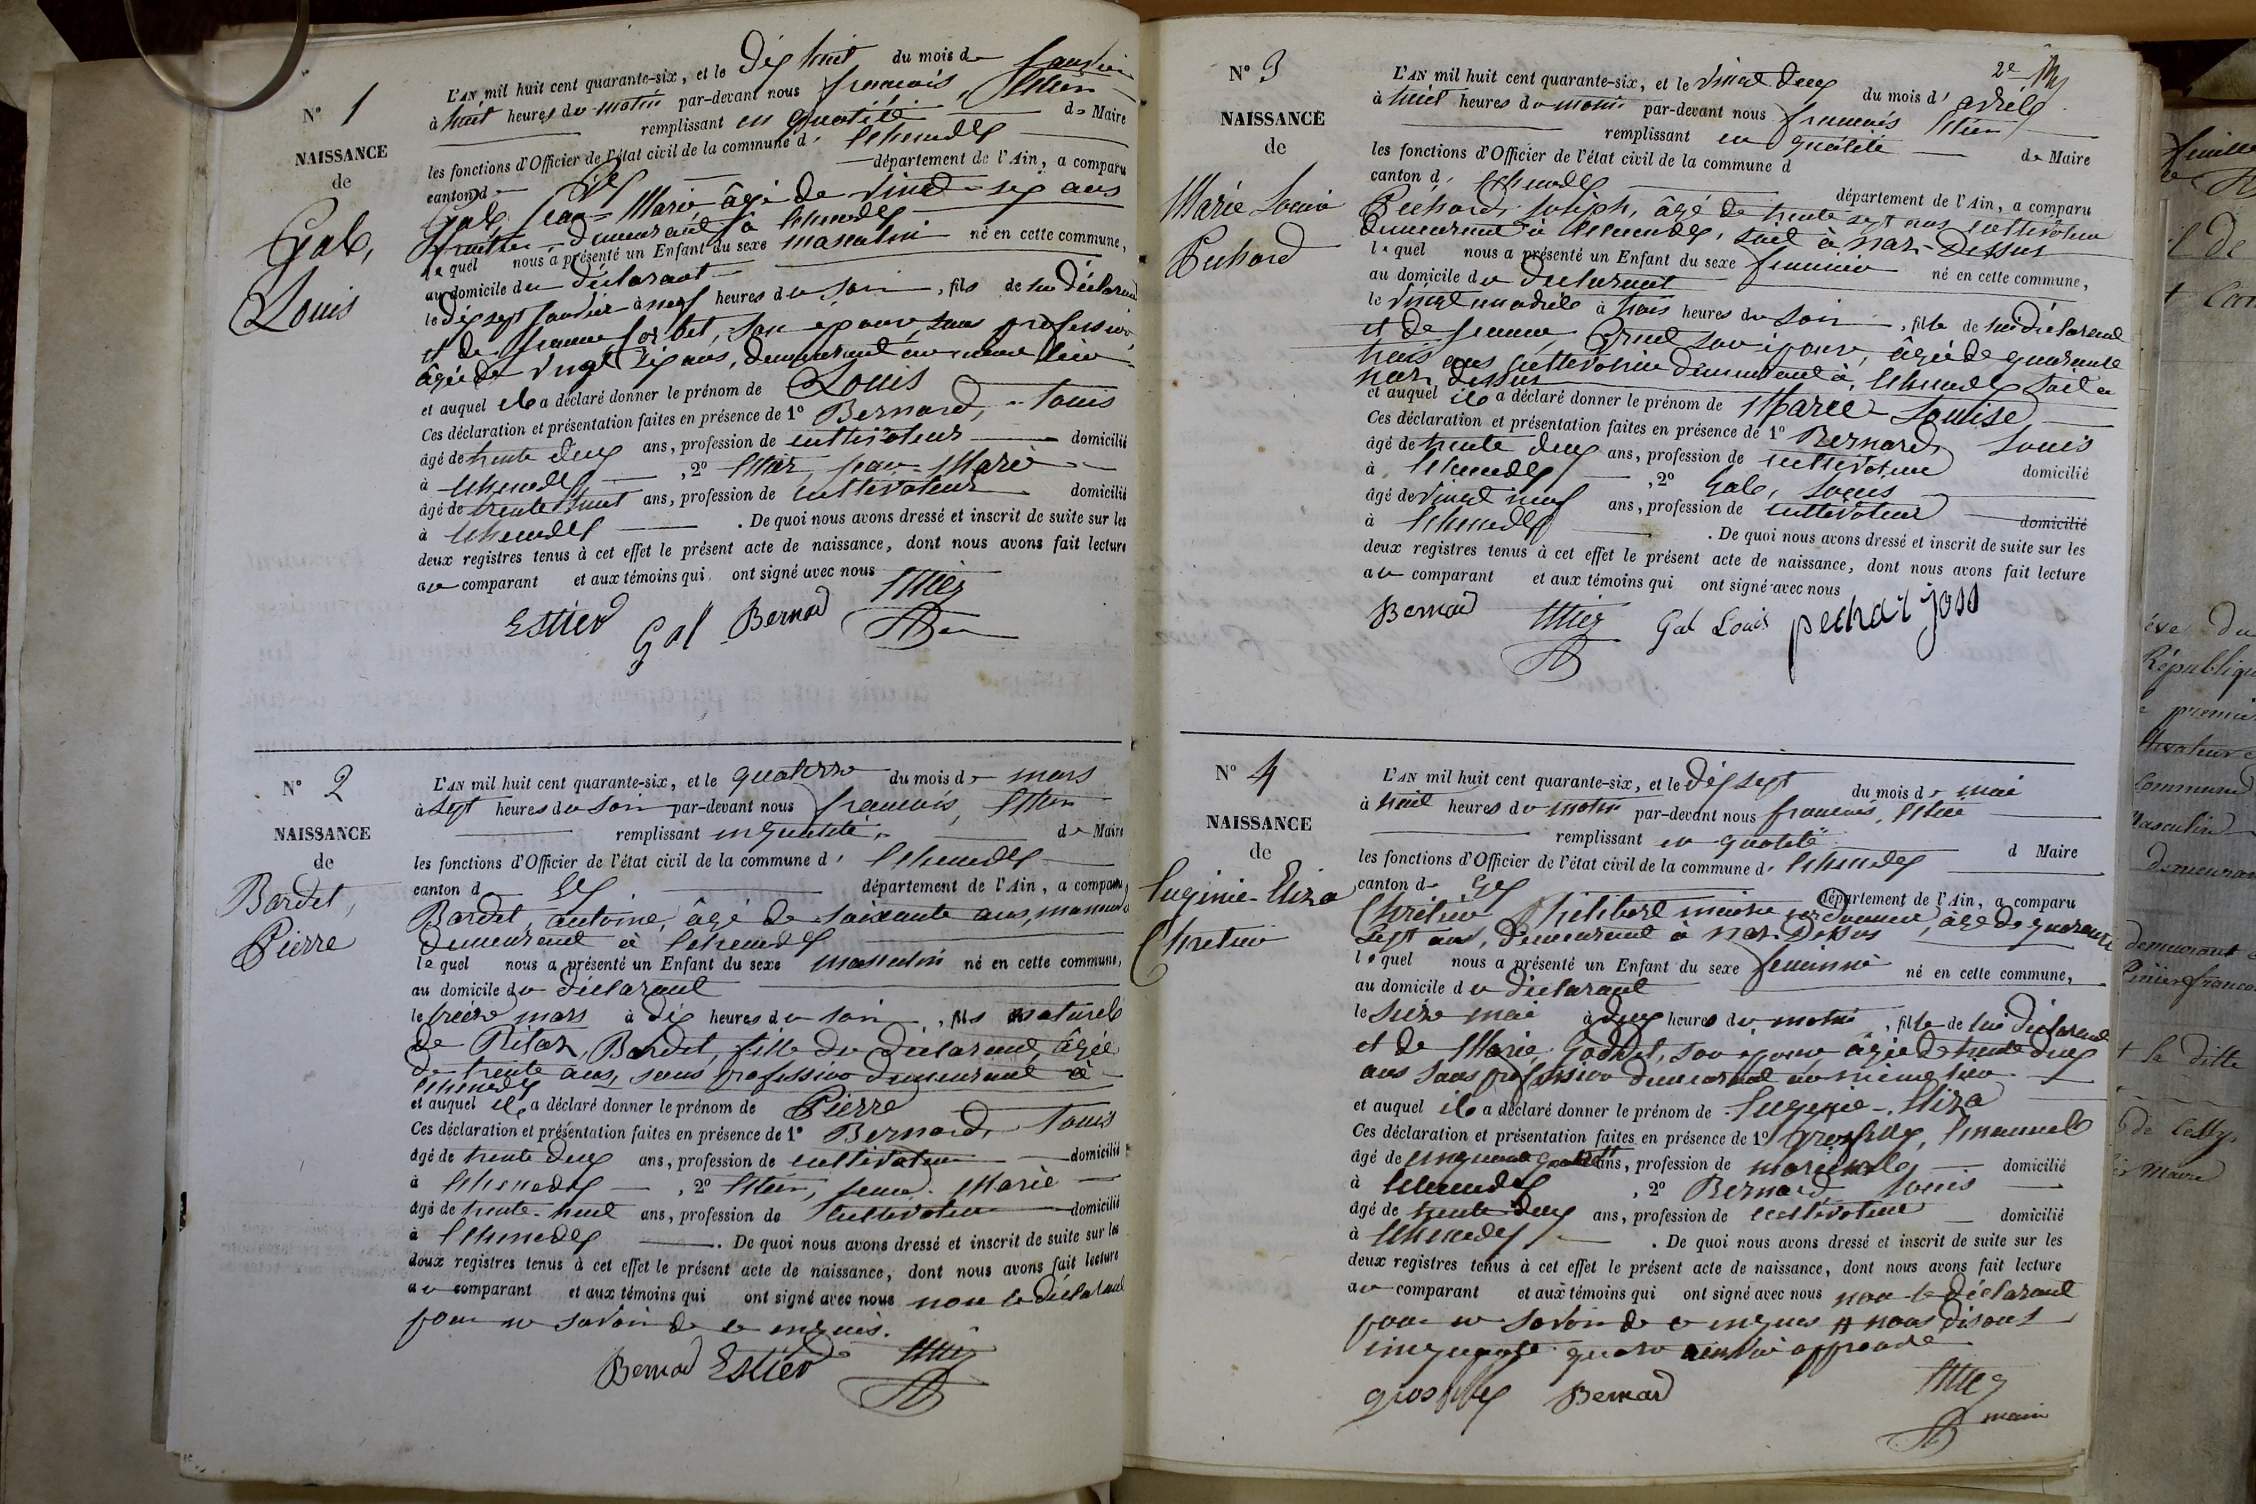 N° 1
NAISSANCE
de
Gal,
Louis
L'AN mil huit cent quarante-six, et le dix huit du mois de janvier
à huit heures du matin par-devant nous francois, Estier
remplissant en qualité de Maire
les fonctions d'Officier de l'état civil de la commune d' Echenevex
canton de Gex département de l'Ain, a comparu
Gal, Jean-Marie âgé de vingt-six ans
fruitier, demeurant à Echenevex
lequel nous a présenté un Enfant du sexe masculin né en cette commune,
au domicile du déclarant
le dix sept janvier à neuf heures du soir, fils de lui déclarant
et de jeanne, son épouse, sans profession,
âgée de vingt six ans, demeurant au même lieu
et auquel il a déclaré donner le prénom de Louis
Ces déclaration et présentation faites en présence de 1° Bernard, Louis
âgé de trente deux ans, profession de cultivateur domicilié
à Echenevex, 2° Estier, Jean-Marie
âgé de trente huit ans, profession de cultivateur domicilié
à Echenevex. De quoi nous avons dressé et inscrit de suite sur les
deux registres tenus à cet effet le présent acte de naissance, dont nous avons fait lecture
au comparant et aux témoins qui ont signé avec nous
Estier Gal Bernard Estier
N° 2
NAISSANCE
de
Bardet,
Pierre
L'AN mil huit cent quarante-six, et le quatorze du mois de mars
à sept heures du soir par-devant nous francois, Estier
remplissant en qualité, de Maire
les fonctions d'Officier de l'état civil de la commune d' Echenevex
canton d Gex département de l'Ain, a comparu
Bardet, antoine, âgé de soixante ans,
demeurant à Echenevex
lequel nous a présenté un Enfant du sexe masculin né en cette commune,
au domicile du déclarant
le treize mars à dix heures du soir, fils naturel
de Bardet, fille du déclarant, âgée
de trente ans, sans profession demeurant à
Echenevex
et auquel il a déclaré donner le prénom de Pierre
Ces déclaration et présentation faites en présence de 1° Bernard, Louis
âgé de trente deux ans, profession de cultivateur domicilié
à Echenevex, 2° Estier, Jean-Marie
âgé de trente-huit ans, profession de cultivateur domicilié
à Echenevex. De quoi nous avons dressé et inscrit de suite sur les
deux registres tenus à cet effet le présent acte de naissance, dont nous avons fait lecture
au comparant et aux témoins qui ont signé avec nous non le déclarant
pour ne savoir de ce enquis.
Bernard Estier Estier
N° 3
NAISSANCE
de
Marie Louise
Pechard
L'AN mil huit cent quarante-six, et le vingt deux du mois d' avril
à huit heures du matin par-devant nous francois Estier
remplissant en qualité de Maire
les fonctions d'Officier de l'état civil de la commune d
canton d' Echenevex département de l'Ain, a comparu
Pechard, joseph, âgé de trente sept ans cultivateur
demeurant à Echenevex, soit à naz-dessus
lequel nous a présenté un Enfant du sexe feminin né en cette commune,
au domicile du déclarant
le vingt un avril à trois heures du soir, fille de lui déclarant
et de jeanne, son épouse, âgée de quarante
trois ans cultivatrice demeurant à Echenevex soit à
naz dessus
et auquel il a déclaré donner le prénom de Marie-Louise
Ces déclaration et présentation faites en présence de 1° Bernard, Louis
âgé de trente deux ans, profession de cultivateur domicilié
à Echenevex, 2° Gal, Louis
âgé de vingt neuf ans, profession de cultivateur domicilié
à Echenevex. De quoi nous avons dressé et inscrit de suite sur les
deux registres tenus à cet effet le présent acte de naissance, dont nous avons fait lecture
au comparant et aux témoins qui ont signé avec nous
Bernard Estier Gal Louis
N° 4
NAISSANCE
de
Eugenie-Eliza
Chretien
L'AN mil huit cent quarante-six, et le dix sept du mois de mai
à huit heures du matin par-devant nous francois, Estier
remplissant en qualité d Maire
les fonctions d'Officier de l'état civil de la commune d' Echenevex
canton de Gex département de l'Ain, a comparu
Chrétien, Philibert âgé de quarante
sept ans, demeurant à naz-Dessus
lequel nous a présenté un Enfant du sexe feminin né en cette commune,
au domicile du déclarant
le seize mai à deux heures du matin, fille de lui déclarant
et de Marie, son épouse âgée de trente deux
ans sans profession demeurant au même lieu
et auquel il a déclaré donner le prénom de Eugenie-Eliza
Ces déclaration et présentation faites en présence de 1° Emanuel
âgé de cinquante ans, profession de domicilié
à Echenevex, 2° Bernard, Louis
âgé de trente deux ans, profession de cultivateur domicilié
à Echenevex. De quoi nous avons dressé et inscrit de suite sur les
deux registres tenus à cet effet le présent acte de naissance, dont nous avons fait lecture
au comparant et aux témoins qui ont signé avec nous non le déclarant
pour ne savoir de ce enquis # nous disons
cinquante
Bernard Estier
maire